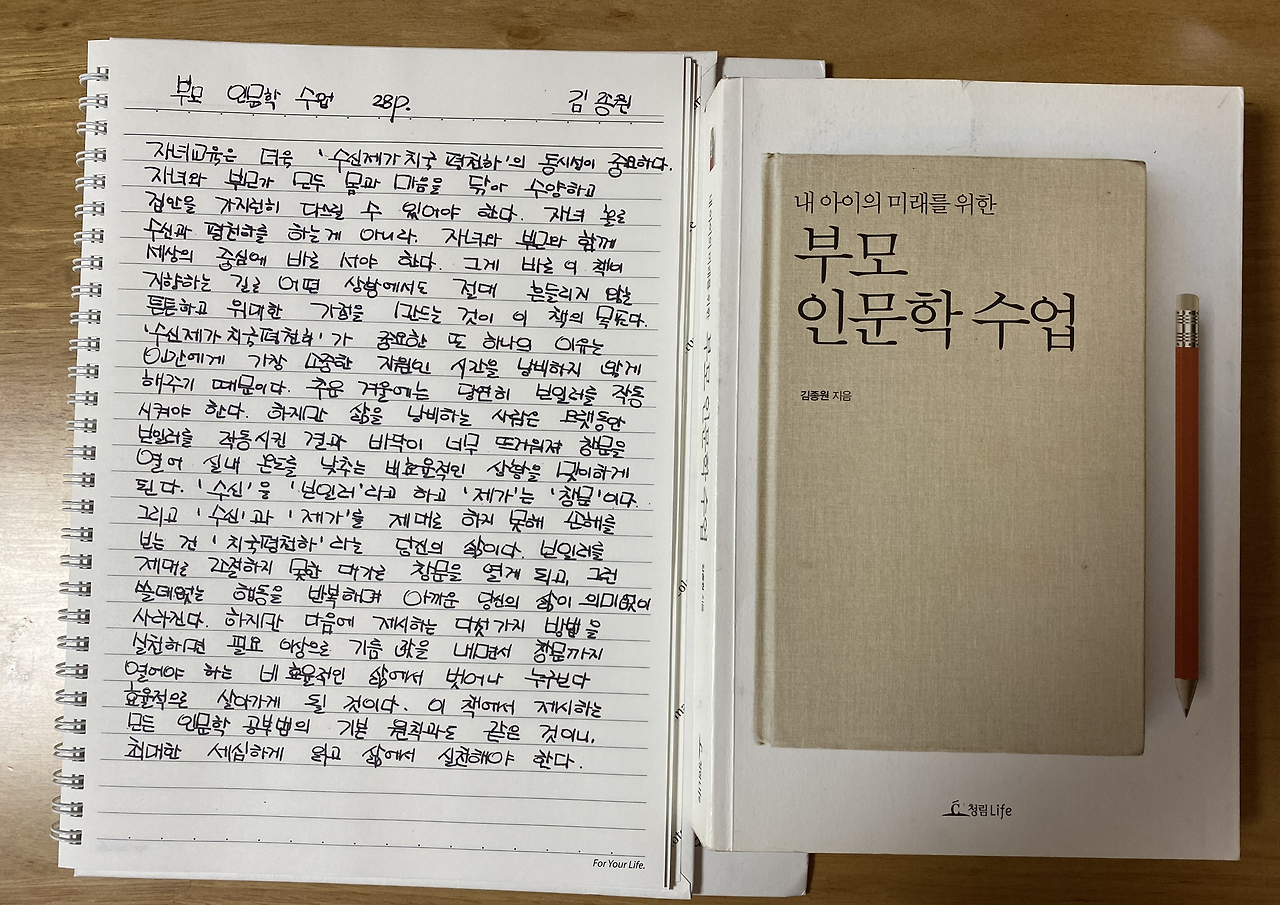 부모 인문학 수업 28p. 김종원
자녀교육은 더욱 '수신제가치국평천하'의 동시성이 중요하다.
자녀와 부모가 모두 몸과 마음을 닦아 수양하고
집안을 가지런히 다스릴 수 있어야 한다. 자녀 홀로
수신과 평천하를 하는게 아니라, 자녀와 부모와 함께
세상의 중심에 바로 서야 한다. 그게 바로 이 책이
지향하는 길로 어떤 상황에서도 절대 흔들리지 않는
튼튼하고 위대한 가정을 만드는 것이 이 책의 목표다.
'수신제가치국평천하'가 중요한 또 하나의 이유는
인간에게 가장 소중한 자원인 시간을 낭비하지 않게
해주기 때문이다. 추운 겨울에는 당연히 보일러를 작동
시켜야 한다. 하지만 삶을 낭비하는 사람은 오랫동안
보일러를 작동시킨 결과 바닥이 너무 뜨거워져 창문을
열어 실내 온도를 낮추는 비효율적인 상황을 맞이하게
된다. '수신'을 '보일러'라고 하고 '제가'는 '창문'이다.
그리고 '수신'과 '제가'를 제대로 하지 못해 손해를
보는 건 '치국평천하'라는 당신의 삶이다. 보일러를
제대로 조절하지 못한 대가로 창문을 열게 되고, 그런
쓸데없는 행동을 반복하며 아까운 당신의 삶이 의미없이
사라진다. 하지만 다음에 제시하는 다섯가지 방법을
실천하면 필요 이상으로 기름 값을 내면서 창문까지
열어야 하는 비효율적인 삶에서 벗어나 누구보다
효율적으로 살아가게 될 것이다. 이 책에서 제시하는
모든 인문학 공부법의 기본 원칙과도 같은 것이니,
최대한 세심하게 읽고 삶에서 실천해야 한다.
For Your Life.
내 아이의 미래를 위한 부모 인문학 수업 김종원 지음 청림Life
내 아이의 미래를 위한
부모
인문학 수업
김종원 지음
청림Life